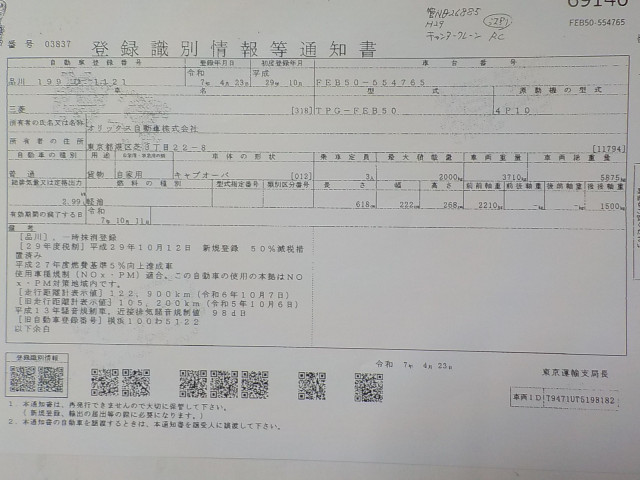 69140
管NB26885
H29
キャンタークレーン AC
FEB50-554765
番号 03837 登録識別情報等通知書
自動車登録番号 登録年月日 初度登録年月 車台番号
品川 199 1121 令和 7年 4月 23日 平成 29年 10月 FEB50-554765
車名 型式 原動機の型式
三菱 [318] TPG-FEB50 4P10
所有者の氏名又は名称 オリックス自動車株式会社
所有者の住所 東京都港区芝3丁目22-8 [11794]
自動車の種別 用途 自家用・事業用の別 車体の形状 乗車定員 最大積載量 車両重量 車両総重量
普通 貨物 自家用 キャブオーバ [012] 3人 2000kg 3710kg 5875kg
総排気量又は定格出力 燃料の種類 型式指定番号 類別区分番号 長さ 幅 高さ 前前軸重 前後軸重 後前軸重 後後軸重
2.99L 軽油 618cm 222cm 268cm 2210kg -kg -kg 1500kg
有効期間の満了する日 令和 7年 10月 11日
備考
[品川],一時抹消登録
[29年度税制]平成29年10月12日 新規登録 50%減税措
置済み
平成27年度燃費基準5%向上達成車
使用車種規制(NOx・PM)適合。この自動車の使用の本拠はNO
x・PM対策地域内です。
[走行距離計表示値]122,900km(令和6年10月7日)
[旧走行距離計表示値]105,200km(令和5年10月6日)
平成13年騒音規制車、近接排気騒音規制値 98dB
[旧自動車登録番号]横浜100わ5122
以下余白
登録識別情報
令和 7年 4月 23日
東京運輸支局長
1.本通知書は、再発行できませんので大切に保管して下さい。
(新規登録、輸出の届出等の際に必要になります。)
2.本通知書の自動車を譲渡するときは、本通知書を譲受人に譲渡して下さい。
車両ID T9471UT5198182